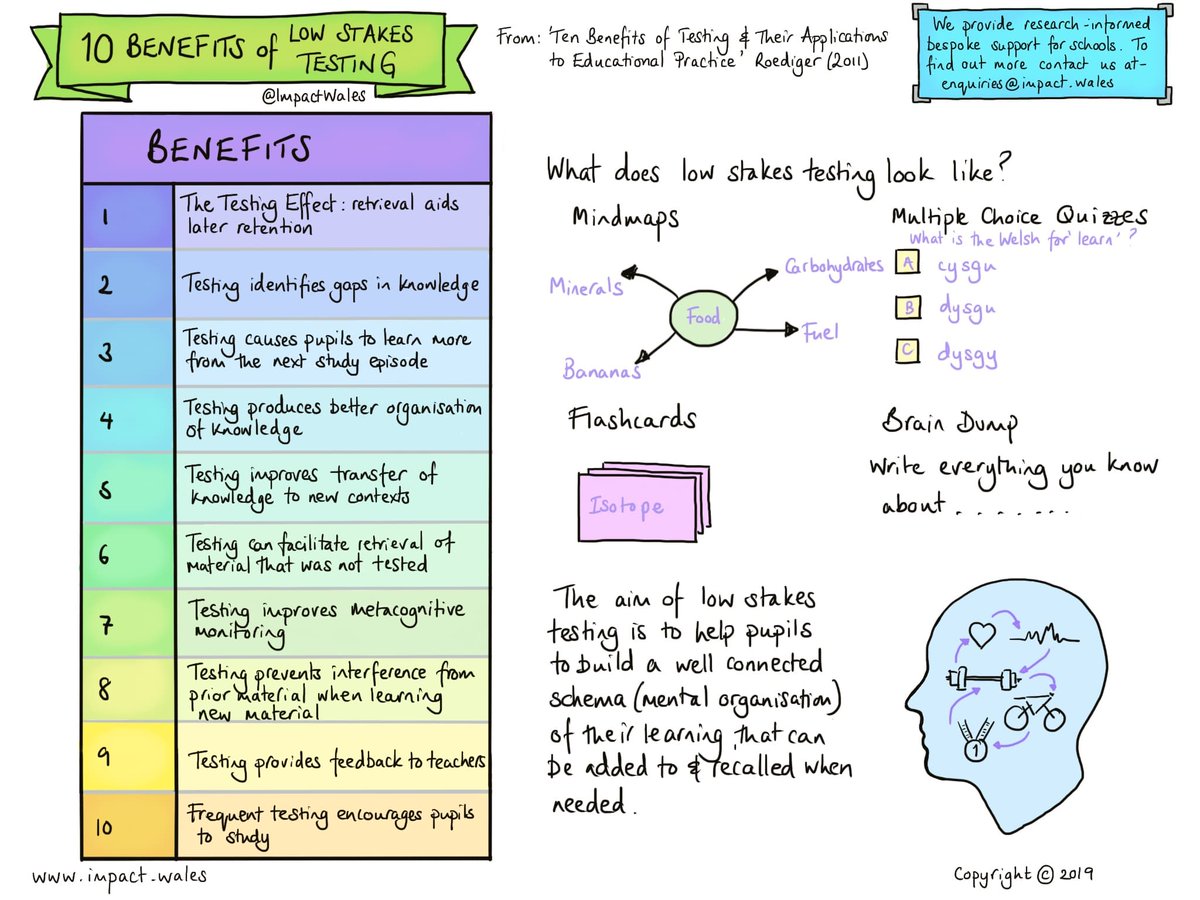 10 BENEFITS of LOW STAKES
TESTING
@ImpactWales
From: 'Ten Benefits of Testing & Their Applications
to Educational Practice' Roediger (2011)
We provide research-informed
bespoke support for schools. To
find out more contact us at-
enquiries@impact.wales
BENEFITS
1
The Testing Effect: retrieval aids
later retention
2
Testing identifies gaps in knowledge
3
Testing causes pupils to learn more
from the next study episode
4
Testing produces better organisation
of knowledge
5
Testing improves transfer of
knowledge to new contexts
6
Testing can facilitate retrieval of
material that was not tested
7
Testing improves metacognitive
monitoring
8
Testing prevents interference from
prior material when learning
new material
9
Testing provides feedback to teachers
10
Frequent testing encourages pupils
to study
www.impact.wales
What does low stakes testing look like?
Mindmaps
Minerals
Carbohydrates
Food
Fuel
Bananas
Multiple Choice Quizzes
What is the Welsh for 'learn'?
A cysgu
B dysgu
C dysgy
Flashcards
Isotope
Brain Dump
Write everything you know
about . . . . . . .
The aim of low stakes
testing is to help pupils
to build a well connected
schema (mental organisation)
of their learning that can
be added to & recalled when
needed.
1
Copyright © 2019